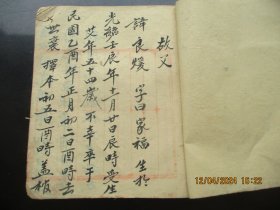 故父
諱良煖 字曰家福 生於
光緒壬辰年十一月廿日辰時受生
艾年五十四歲不幸卒于
民國乙酉年正月初二日酉時去
世裏 擇本初五日酉時蓋板
12/04/2024 13:22